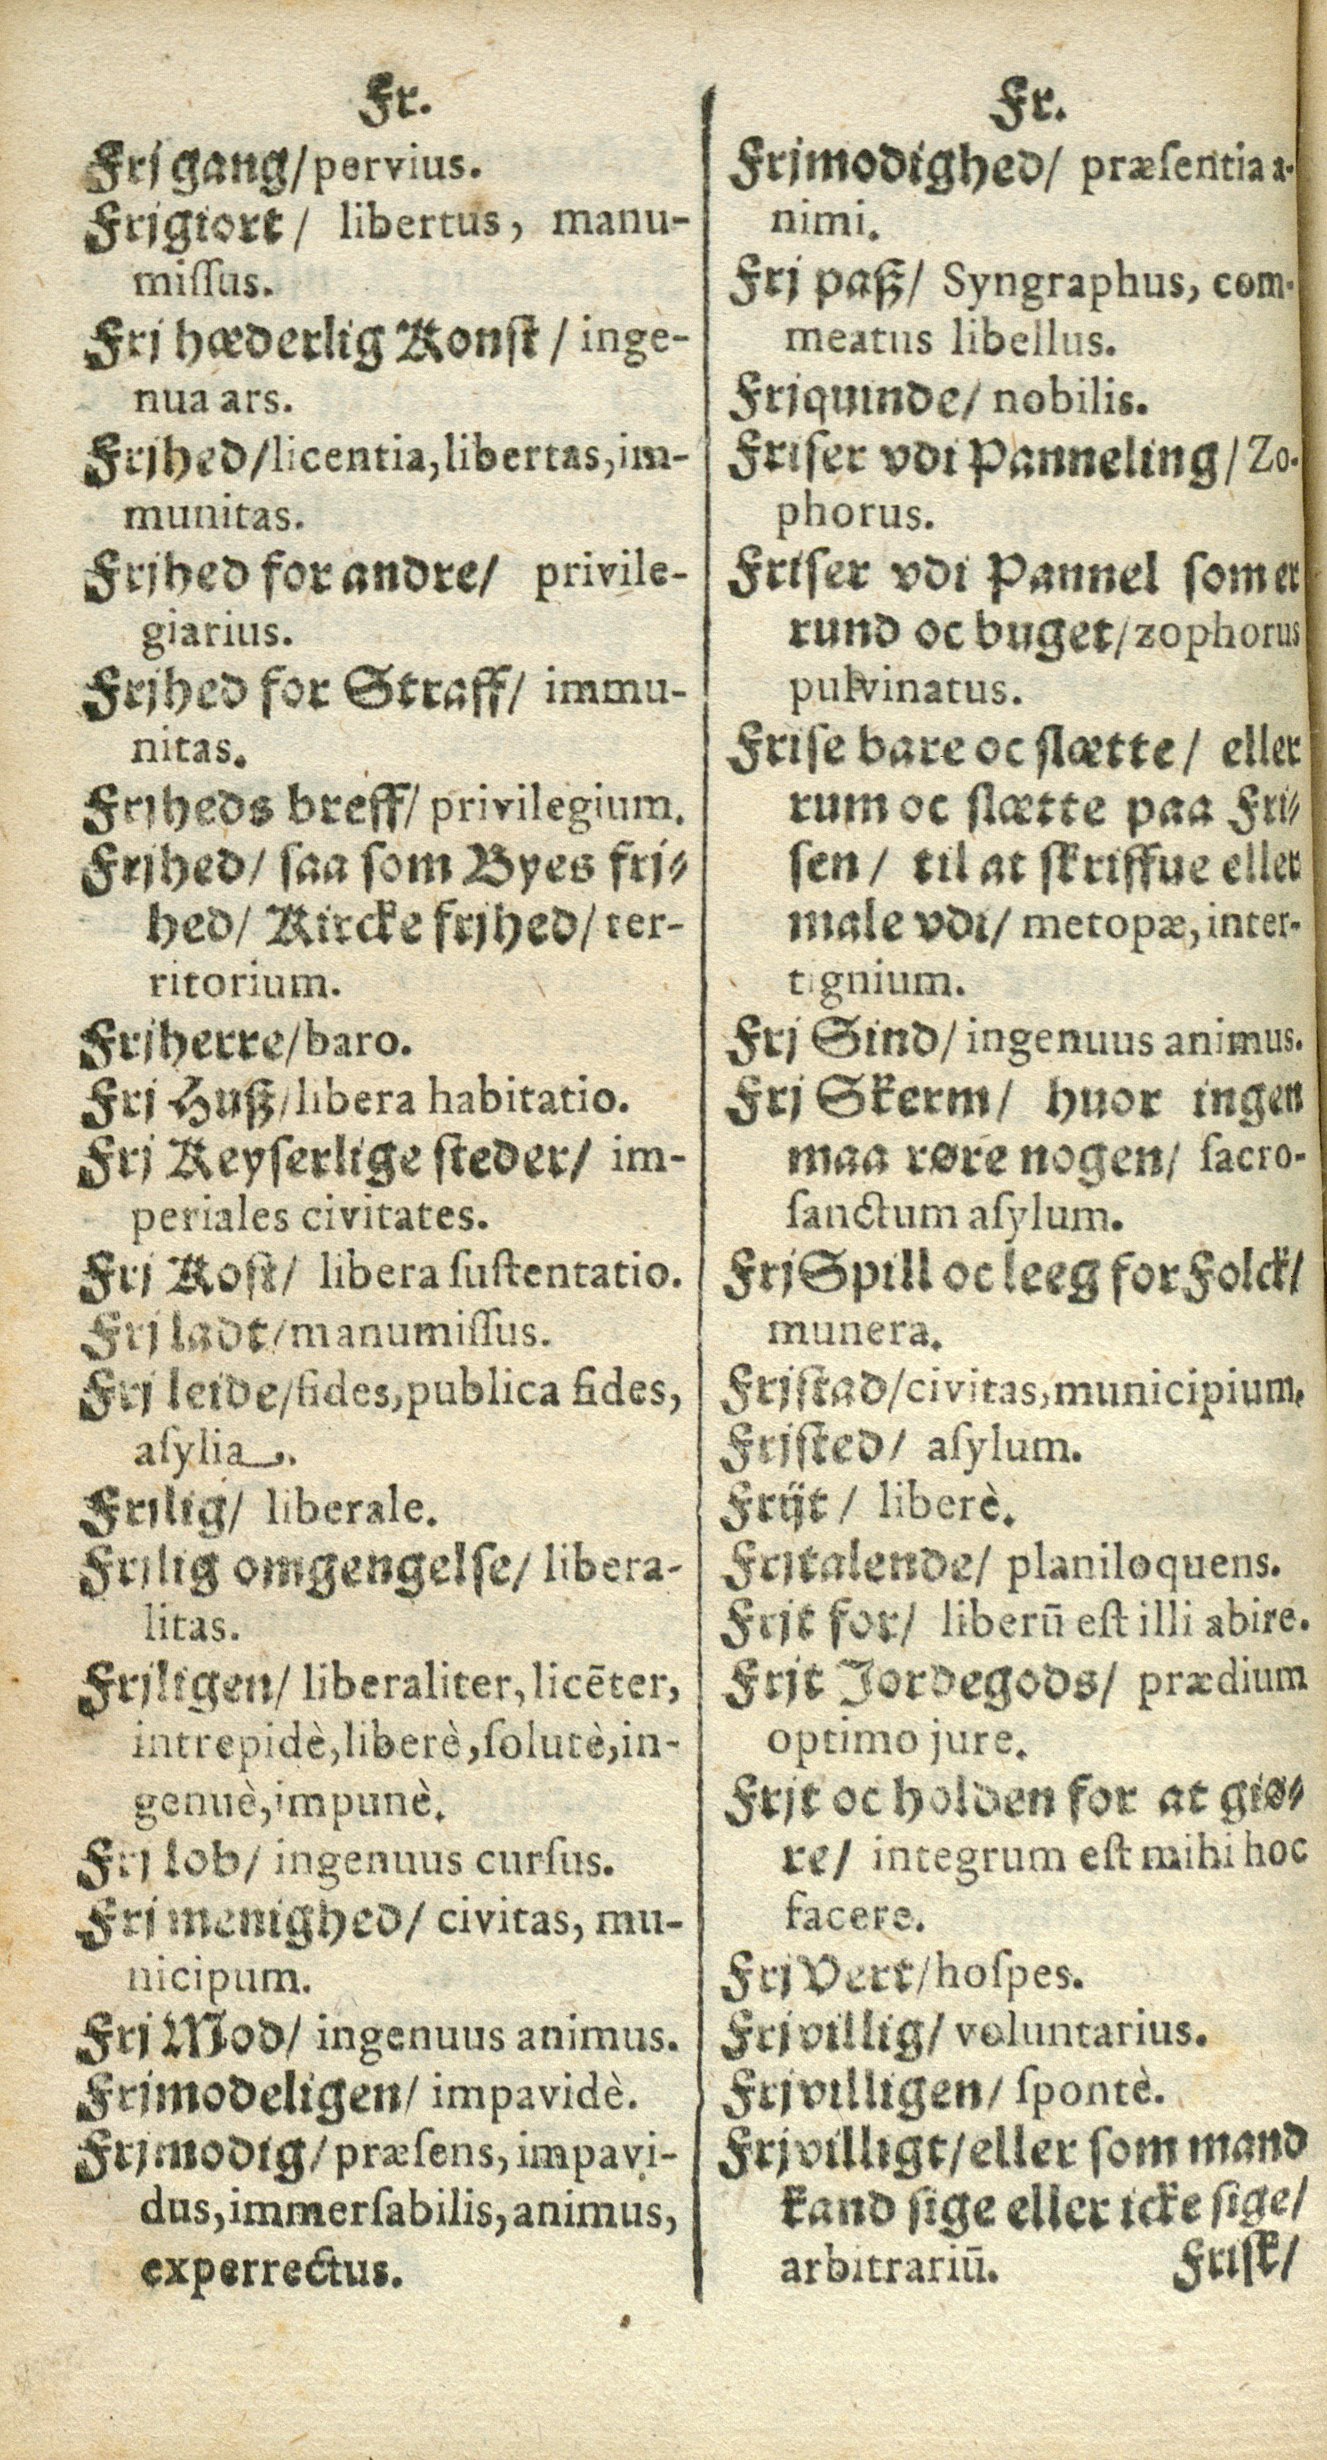 Fr.
Frj gang/pervius.
Frjgiort/ libertus, manu-
miſſus.
Frj hæderlig Konſt/ inge-
nua ars.
Frjhed/licentia,libertas,im-
munitas.
Frjhed for andre/ privile-
giarius.
Frjhed for Straff/ immu-
nitas.
Frjheds breff/ privilegium.
Frjhed/ ſaa ſom Byes frj-
hed/ Kircke frjhed/ ter-
ritorium.
Frjherre/baro.
Frj Huß/libera habitatio.
Frj Keyſerlige ſteder/ im-
periales civitates.
Frj Koſt/ libera ſuſtentatio.
Frj ladt/manumiſſus.
Frj leide/fides,publica fides,
aſylia.
Frilig/ liberale.
Frjlig omgengelſe/ libera-
litas.
Frjligen/ liberaliter, licēter,
intrepidè,liberè,ſolutè,in-
genuè,impunè.
Frj lob/ ingenuus curſus.
Frj menighed/ civitas, mu-
nicipum.
Frj Mod/ ingenuus animus.
Frjmodeligen/ impavidè.
Frjmodig/præſens, impavi-
dus,immerſabilis,animus,
experrectus.
Fr.
Frjmodighed/ præſentia a-
nimi.
Frj paß/ Syngraphus, com-
meatus libellus.
Frjquinde/ nobilis.
Friſer vdi Panneling/ Zo-
phorus.
Friſer vdi Pannel ſom er
rund oc buget/zophorus
pulvinatus.
Friſe bare oc ſlætte/ eller
rum oc ſlætte paa Fri-
ſen/ til at ſkriffue eller
male vdi/ metopæ, inter-
tignium.
Frj Sind/ ingenuus animus.
Frj Skerm/ huor ingen
maa røre nogen/ ſacro-
ſanctum aſylum.
Frj Spill oc leeg for Folck/
munera.
Frjſtad/civitas,municipium.
Frjſted/ aſylum.
Frijt/ liberè.
Frjtalende/ planiloquens.
Frjt for/ liberū eſt illi abire.
Frjt Jordegods/ prædium
optimo jure.
Frjt oc holden for at giø-
re/ integrum eſt mihi hoc
facere.
Frj Vert/hoſpes.
Frjvillig/ voluntarius.
Frjvilligen/ ſpontè.
Frjvilligt/eller ſom mand
kand ſige eller icke ſige/
arbitrariū.
Friſk/